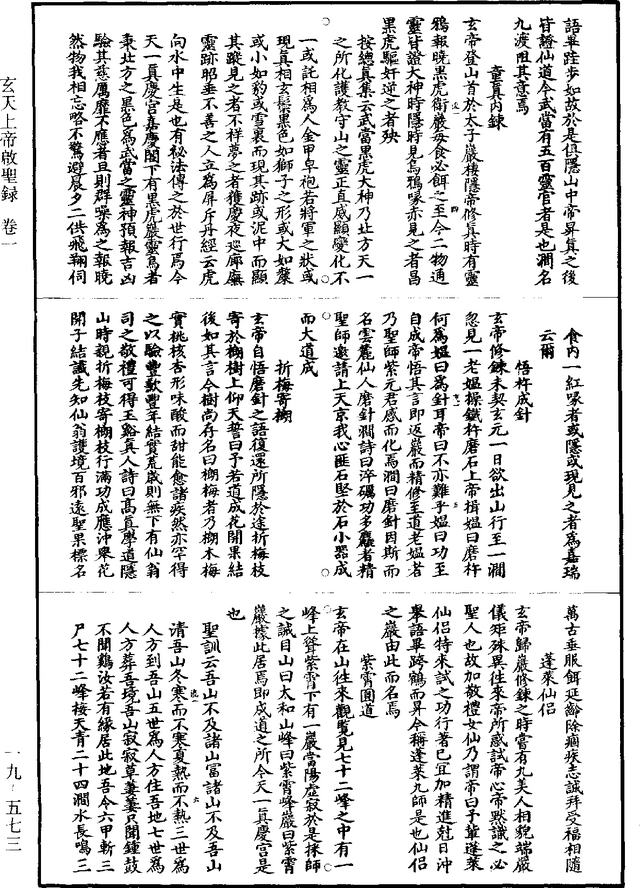 語畢跬步如故於是俱隱山中帝昇真之後
皆證仙道今武當有五百靈官者是也澗名
九渡阻其意焉
童真內鍊
玄帝登山首於太子巖棲隱帝修真時有靈
鴉報曉黑虎衛巖每食必餌之至今二物通
靈皆證大神時隱時見烏鴉喙亦見之者昌
黑虎驅奸逆之者殃
按總真集云武當黑虎大神乃北方天一
之所化護教守山之靈正直感顯變化不
一或託相為人金甲皁袍若將軍之狀或
現真相玄鬃黑色如獅子之形或大如麋
或小如豹或雪裏而現其跡或泥中而顯
其蹤見之者不祥夢之者獲慶夜巡廊廡
靈跡昭垂不善之人立為屏斥丹經云虎
向水中生是也有秘法傳之於世行焉今
天一真慶宮嘉慶閣下有黑虎巖靈烏者
稟北方之黑色為武當之靈神預報吉凶
驗其慈厲靡不應者旦則群噪為之報曉
然物我相忘略不驚避晨夕二供飛翔伺
食內一紅喙者或隱或現見之者為嘉瑞
云爾
悟杵成針
玄帝修鍊未契玄元一日欲出山行至一澗
忽見一老媼操鐵杵磨石上帝揖媼曰磨杵
何為媼曰為針耳帝曰不亦難乎媼曰功至
自成帝悟其言即返巖而精修至道老媼者
乃聖師紫元君感而化焉澗曰磨針因斯而
名雲麓仙人磨針澗詩曰淬礪功多麤者精
聖師邀請上天京我心匪石堅於石小器成
而大道成
折梅寄榔
玄帝自悟磨針之語復還所隱於途折梅枝
寄於榔樹上仰天誓曰予若道成花開果結
後如其言今樹尚存名曰榔梅者乃榔木梅
實桃核杏形味酸而甜能愈諸疾然亦罕得
之以驗豐歉豐年結實荒歲則無下有仙翁
司之敬禮可得玉谿真人詩曰高真學道隱
山時親折梅枝寄榔枝行滿功成應沖舉花
開子結讖先知仙翁護境百邪遠聖果標名
萬古垂服餌延齡除痼疾志誠拜受福相隨
蓬萊仙侶
玄帝歸巖修鍊之時嘗有九美人相貌端嚴
儀矩殊異往來帝所感試帝心帝默識之必
聖人也故加敬禮女仙乃謂帝曰予輩蓬萊
仙侶特來試之功行著已宜加精進尅日沖
舉語畢跨鶴而昇今稱蓬萊九師是也仙侶
之巖由此而名焉
紫霄圓道
玄帝在山往來觀覽見七十二峰之中有一
峰上聳紫霄下有一巖當陽虛寂於是採師
之誠目山曰太和山峰曰紫霄峰巖曰紫霄
巖據此居焉即成道之所今天一真慶宮是
也
聖訓云吾山不及諸山富諸山不及吾山
清吾山冬寒而不寒夏熱而不熱三世為
人方到吾山五世為人方住吾地七世為
人方葬吾境吾山寂寂草萋萋只聞鍾鼓
不聞鷄汝若有緣居此地吾今六甲斬三
尸七十二峰接天青二十四澗水長鳴三
玄天上帝啟聖録 卷一
一九·五七三